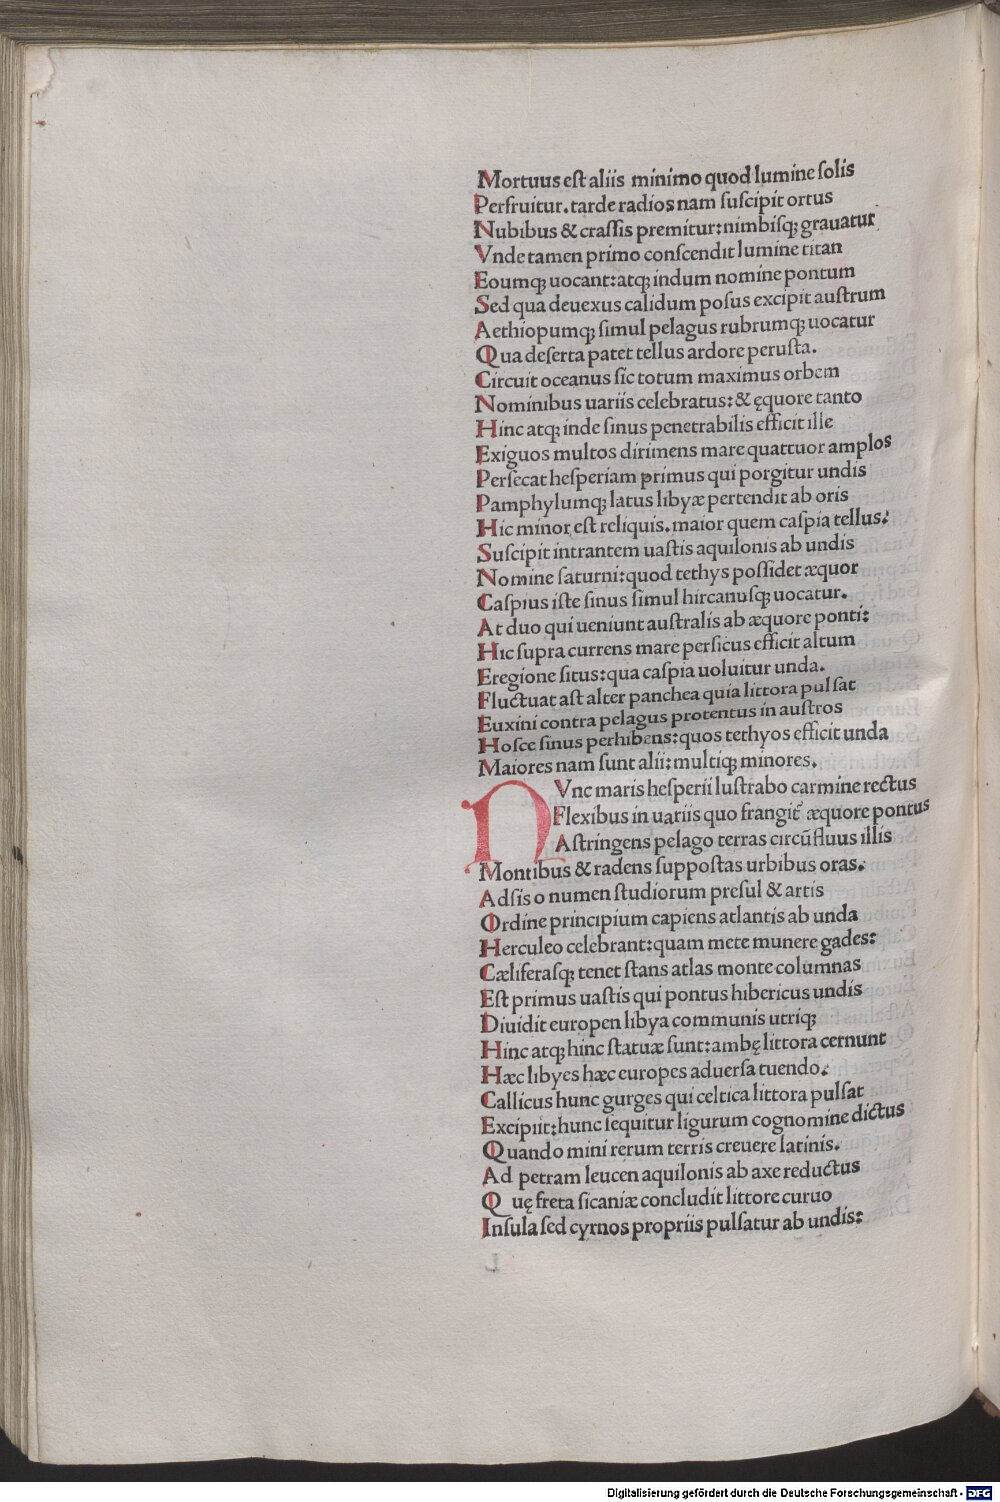 Mortuus est aliis minimo quod lumine solis
Perfruitur. tarde radios nam suscipit ortus
Nubibus & crassis premitur: nimbisqꝫ grauatur
Vnde tamen primo conscendit lumine titan
Eoumqꝫ uocant: atqꝫ indum nomine pontum
Sed qua deuexus calidum posus excipit austrum
Aethiopumqꝫ simul pelagus rubrumqꝫ uocatur
Qua deserta patet tellus ardore perusta.
Circuit oceanus sic totum maximus orbem
Nominibus uariis celebratus: & ęquore tanto
Hinc atqꝫ inde sinus penetrabilis efficit ille
Exiguos multos dirimens mare quattuor amplos
Persecat hesperiam primus qui porgitur undis
Pamphylumqꝫ latus libyæ pertendit ab oris
Hic minor est reliquis. maior quem caspia tellus:
Suscipit intrantem uastis aquilonis ab undis
Nomine saturni: quod tethys possidet æquor
Caspius iste sinus simul hircanusqꝫ uocatur.
At duo qui ueniunt australis ab æquore ponti:
Hic supra currens mare persicus efficit altum
Eregione situs: qua caspia uoluitur unda.
Fluctuat ast alter panchea quia littora pulsat
Euxini contra pelagus protentus in austros
Hosce sinus perhibens: quos tethyos efficit unda
Maiores nam sunt alii: multiqꝫ minores.
NVnc maris hesperii lustrabo carmine rectus
Flexibus in uariis quo frangit̃ æquore pontus
Astringens pelago terras circũfluus illis
Montibus & radens suppostas urbibus oras.
Adsis o numen studiorum presul & artis
Ordine principium capiens atlantis ab unda
Herculeo celebrant: quam mete munere gades:
Cæliferasqꝫ tenet stans atlas monte columnas
Est primus uastis qui pontus hibericus undis
Diuidit europen libya communis utriqꝫ
Hinc atqꝫ hinc statuæ sunt: ambę littora cernunt
Hæc libyes hæc europes aduersa tuendo.
Callicus hunc gurges qui celtica littora pulsat
Excipiit: hunc sequitur ligurum cognomine dictus
Quando mini rerum terris creuere latinis.
Ad petram leucen aquilonis ab axe reductus
Quę freta sicaniæ concludit littore curuo
Insula sed cyrnos propriis pulsatur ab undis:
Digitalisierung gefördert durch die Deutsche Forschungsgemeinschaft - DFG